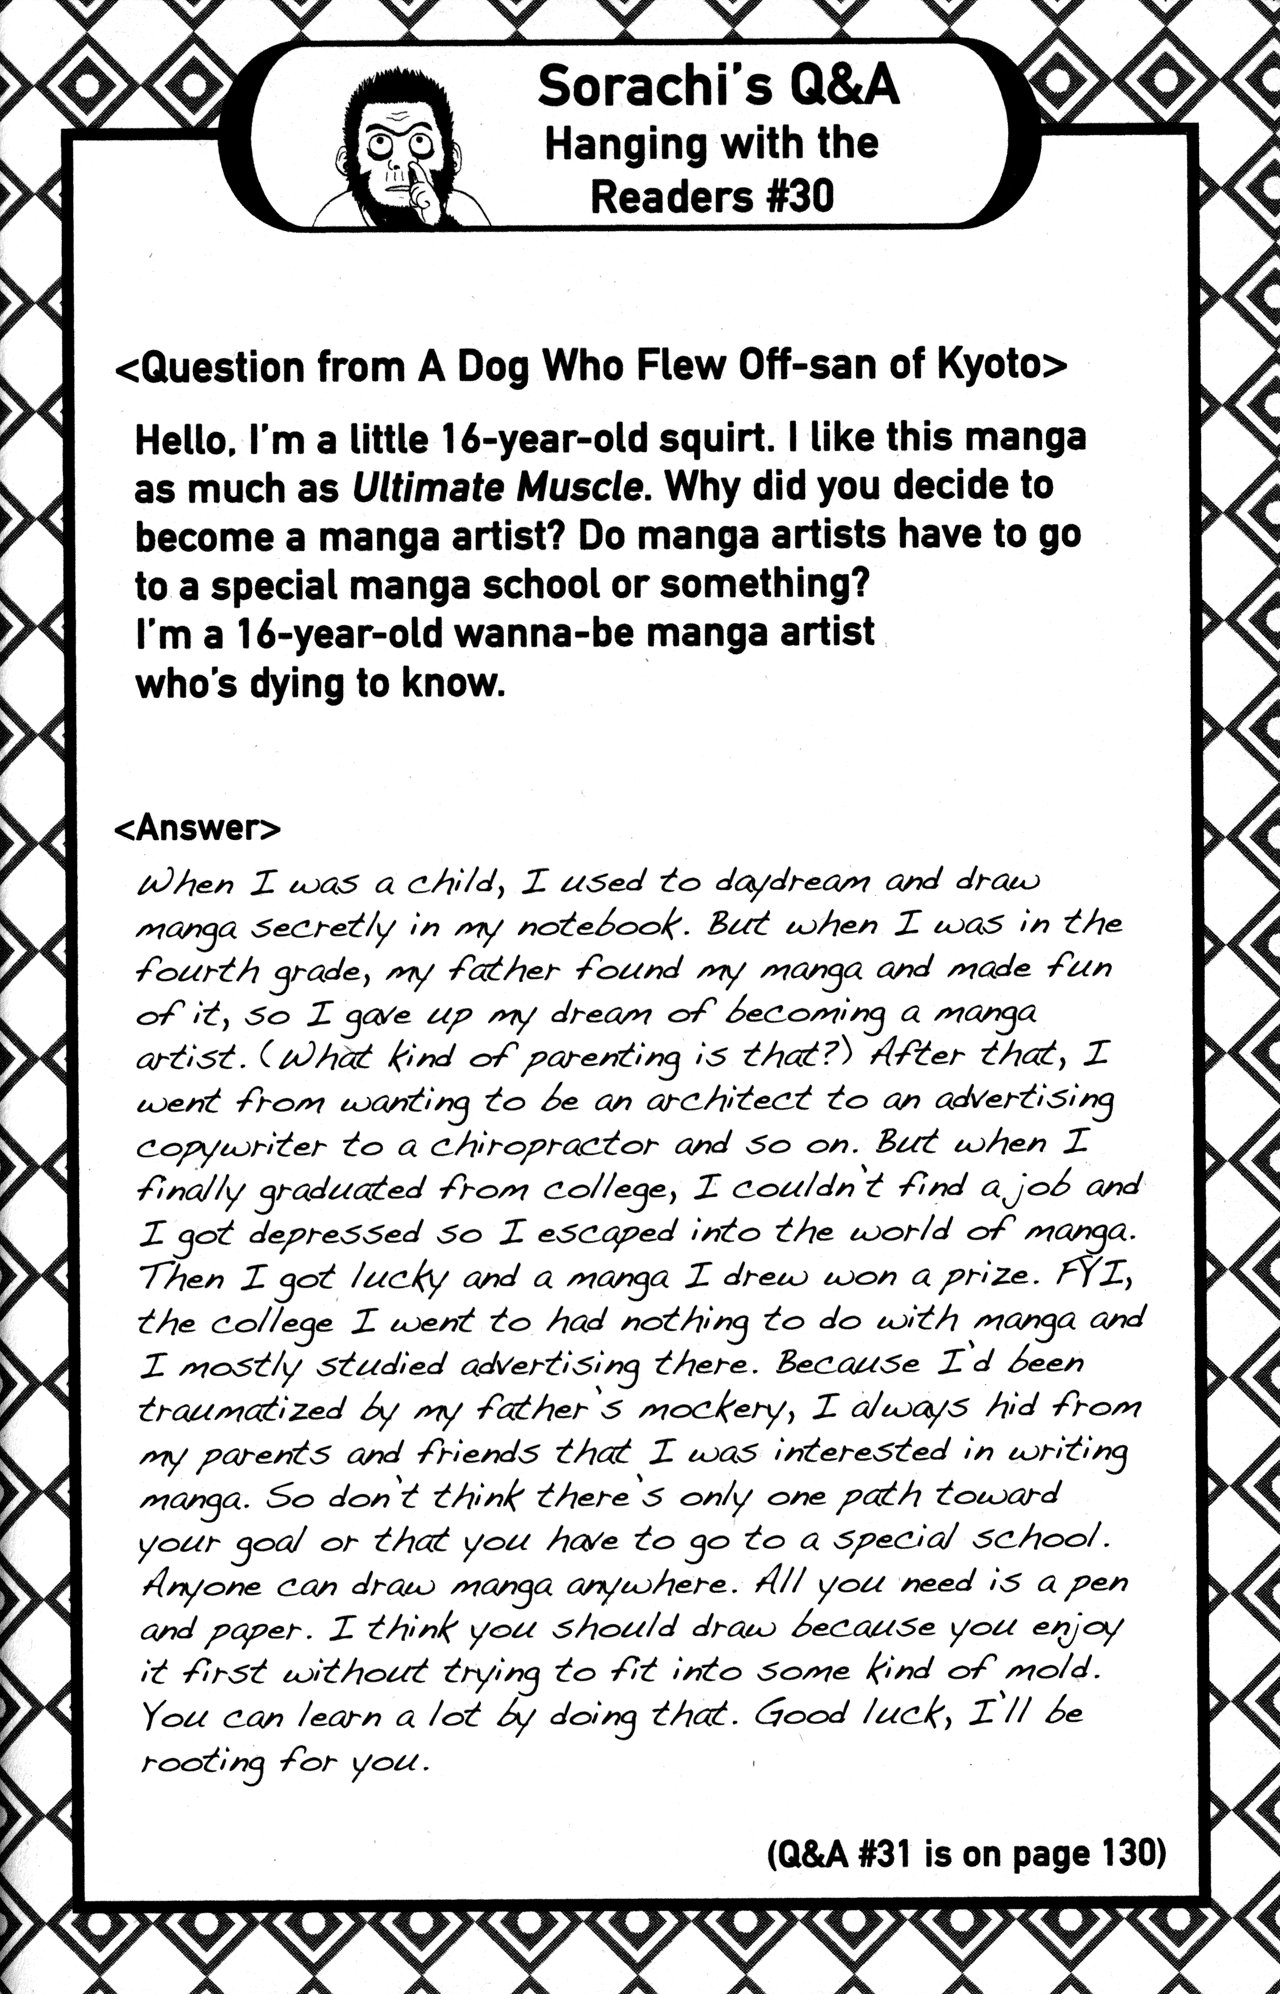 Sorachi's Q&A
Hanging with the
Readers #30
<Question from A Dog Who Flew Off-san of Kyoto>
Hello, I'm a little 16-year-old squirt. I like this manga
as much as Ultimate Muscle. Why did you decide to
become a manga artist? Do manga artists have to go
to a special manga school or something?
I'm a 16-year-old wanna-be manga artist
who's dying to know.
<Answer>
When I was a child, I used to daydream and draw
manga secretly in my notebook. But when I was in the
fourth grade, my father found my manga and made fun
of it, so I gave up my dream of becoming a manga
artist. (What kind of parenting is that?) After that, I
went from wanting to be an architect to an advertising
copywriter to a chiropractor and so on. But when I
finally graduated from college, I couldn't find a job and
I got depressed so I escaped into the world of manga.
Then I got lucky and a manga I drew won a prize. FYI,
the college I went to had nothing to do with manga and
I mostly studied advertising there. Because I'd been
traumatized by my father's mockery, I always hid from
my parents and friends that I was interested in writing
manga. So don't think there's only one path toward
your goal or that you have to go to a special school.
Anyone can draw manga anywhere. All you need is a pen
and paper. I think you should draw because you enjoy
it first without trying to fit into some kind of mold.
You can learn a lot by doing that. Good luck, I'll be
rooting for you.
(Q&A #31 is on page 130)